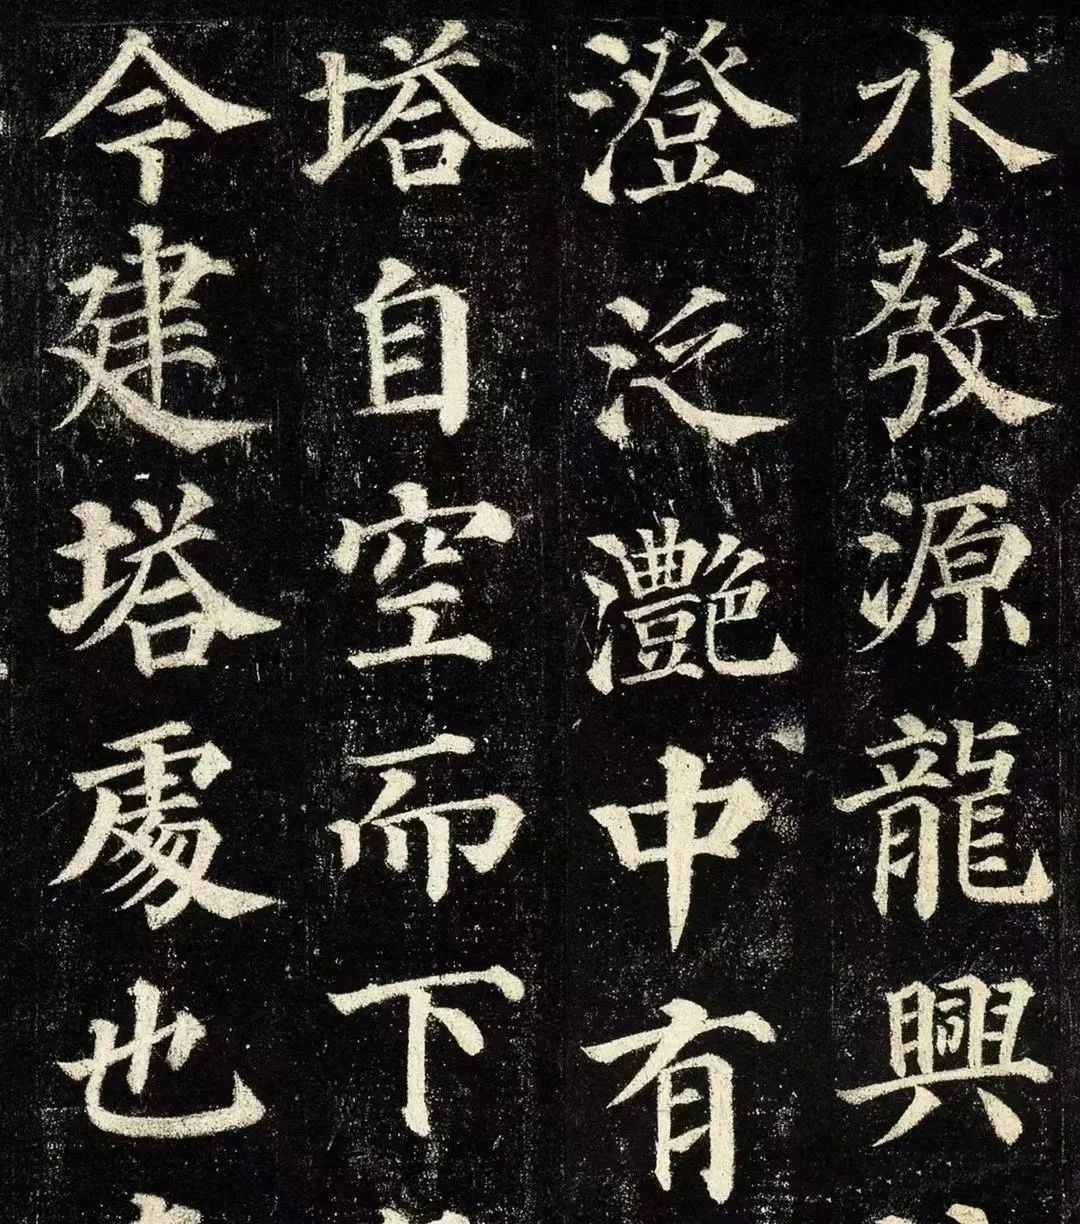 水發源龍興
澄泛灧中有
塔自空而下
今建塔處也